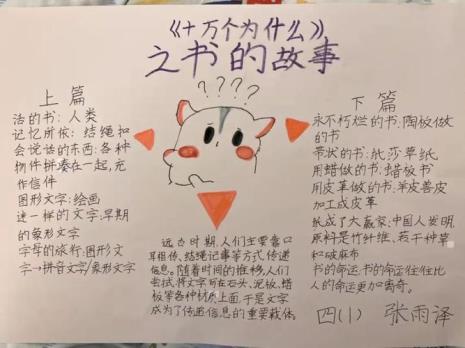 《十万个为什么》
之书的故事
上篇
活的书：人类
记忆所依：结绳扣
会说话的东西：各种
物件拼凑在一起，充
作信件
图形文字：绘画
谜一样的文字：早期
的象形文字
字母的旅行：图形文
字→拼音文字/象形文字
????
远古时期，人们主要靠口
耳相传、结绳记事等方式，传递
信息。随着时间的推移，人们
尝试将文字写在石头、泥板、蜡
板等各种材质上面，于是文字
成为了传递信息的重要载体。
下篇
永不朽烂的书：陶板做
的书
带状的书：纸莎草纸
用蜡做的书：蜡板书
用皮革做的书：羊皮兽皮
加工成皮革
纸成了大赢家：中国人发明，
原料是竹纤维、若干种草
和破麻布
书的命运：书的命运往往比
人的命运更加离奇。
四(1) 张雨泽